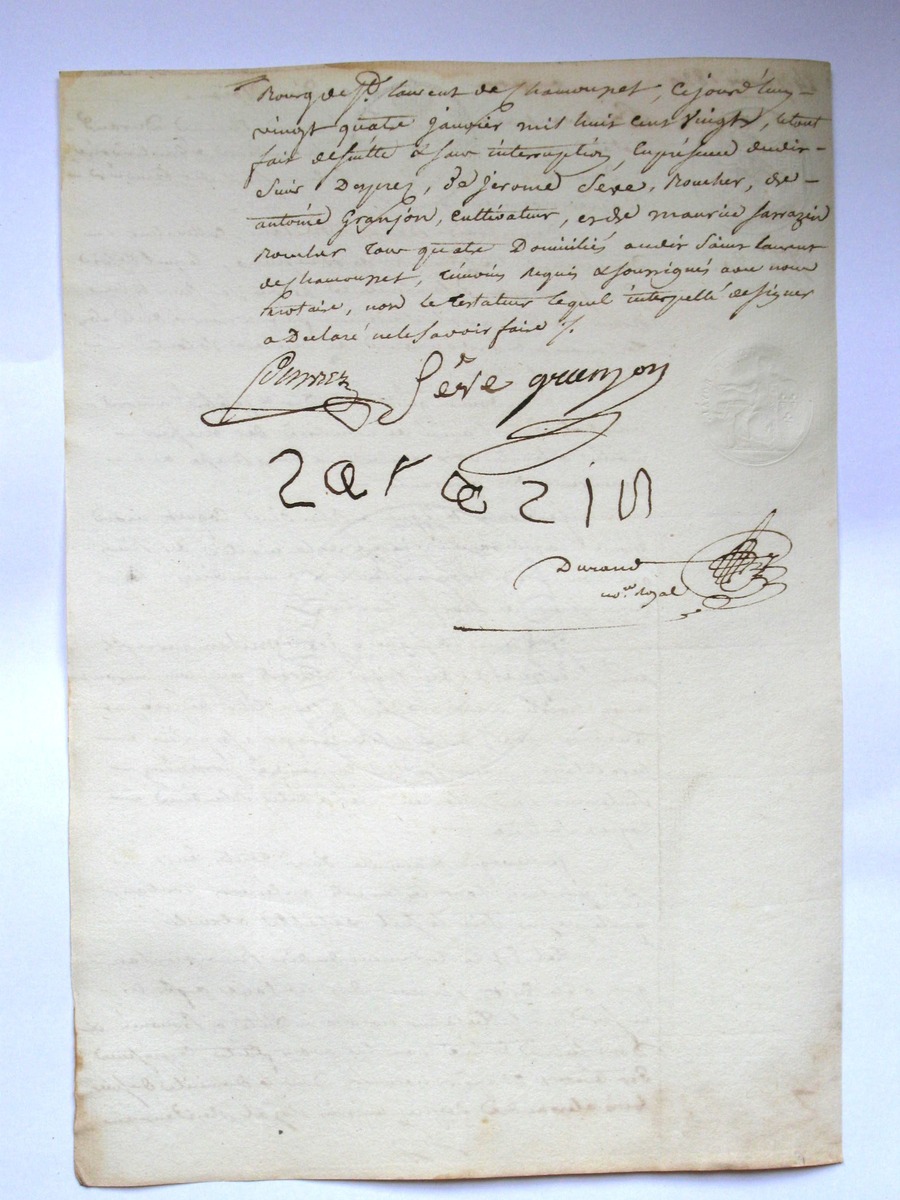 Bourg de St. laurent de Chamousset, Cejourd'huy
vingt quatre janvier mil huit cent vingt, le tout
fait desuitte & sans interruption, en présence dudit
Sieur Desprez, de jerome Seve, Boucher, de
antoine Granjon, cultivateur, et de maurice Sarrazin
Boucher tous quatre Domiciliés audit Saint laurent
de Chamousset, témoins requis & soussignés avec nous
Notaire, non le testateur lequel interpellé de signer
a Declaré ne le Savoir faire
Séve granjon
Zarazin
Durand
no.re royal